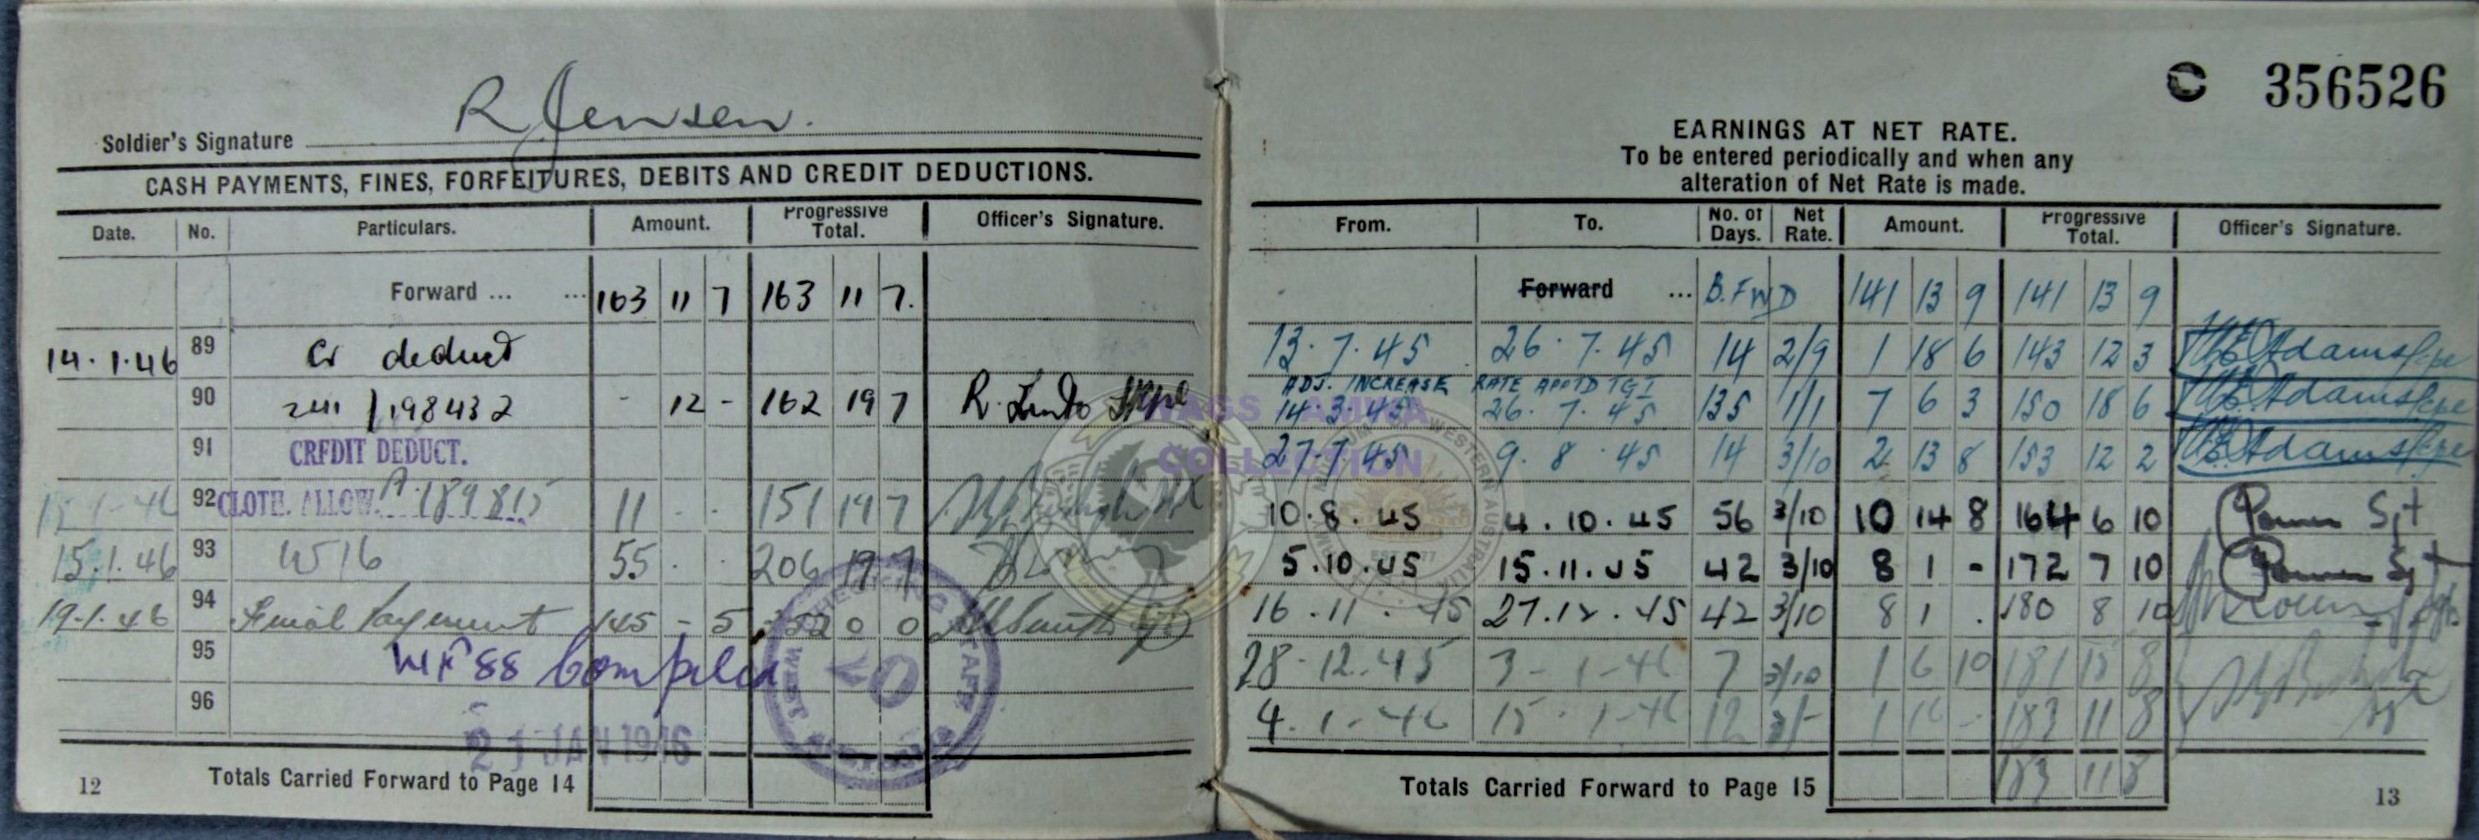 Soldier's Signature R Jensen.
CASH PAYMENTS, FINES, FORFEITURES, DEBITS AND CREDIT DEDUCTIONS.
Date. No. Particulars. Amount. Progressive Total. Officer's Signature.
Forward ... ... 163 11 7 163 11 7.
14.1.46 89 Cr deduct
90 198432 - 12 - 162 19 7 R.
91 CREDIT DEDUCT.
15.1.46 92 CLOTH. ALLOW. A 189815 11 . . 151 19 7
15.1.46 93 W516 55 . . 206 19 7
19.1.46 94 Final Payment 145 - 5 352 0 0
95 WF 88 Compiled
96
21 JAN 1946
CHECKING STAFF
20
12 Totals Carried Forward to Page 14
C 356526
EARNINGS AT NET RATE.
To be entered periodically and when any
alteration of Net Rate is made.
From. To. No. of Days. Net Rate. Amount. Progressive Total. Officer's Signature.
Forward ... B. FWD 141 13 9 141 13 9
13.7.45 26.7.45 14 2/9 1 18 6 143 12 3 Adams
ADJ. INCREASE RATE APPTD TG I
14.3.45 26.7.45 135 1/1 7 6 3 150 18 6 Adams
27.7.45 9.8.45 14 3/10 2 13 8 153 12 2 Adams
10.8.45 4.10.45 56 3/10 10 14 8 164 6 10 Sgt
5.10.45 15.11.45 42 3/10 8 1 - 172 7 10 Sgt
16.11.45 27.12.45 42 3/10 8 1 . 180 8 10
28.12.45 3-1-46 7 3/10 1 6 10 181 15 8
4.1-46 15.1-46 12 3/- 1 16 - 183 11 8
183 11 8
Totals Carried Forward to Page 15
13
WAGS AMWA
COLLECTION